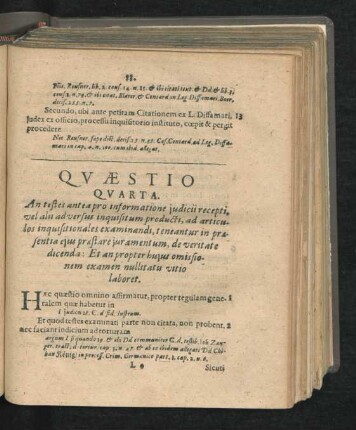 33.
Nic. Reusner. lib. 2. cons. 14. n. 21. & ibi citati sunt. & Dd. & lib. 4.
cons. 2. n. 79. & ibi citat. Blarer. & Contard. in Leg. Diffamari. Boer.
decis. 255. n. 7.
Secundo, ubi ante petitam Citationem ex L. Diffamari, 18
Judex ex officio, processu inquisitorio instituto, cœpit & pergit
procedere
Nic. Reusner. sæpè dict. decis. 17. n. 35. Cæs. Contard. ad Leg. Diffa-
mari in cap. 2. n. cum ibid. allegat.
QVÆSTIO
QVARTA.
An testes antea pro informatione judicii recepti,
vel aliàs adversus inquisitum producti, ad articu-
los inquisitionales examinandi, teneantur in præ-
sentia ejus præstare juramentum, de veritate
dicenda: Et an propter hujus omissio-
nem examen nullitatis vitio
laboret.
Hæc quæstio omnino affirmatur, propter regulam gene- 1
ralem quæ habetur in
l. judices 18. C. de fid. instrum.
Et quod testes examinati parte non citata, non probent. 2
nec faciant indicium ad torturam
argum. l. si quando 19. & ibi Dd. communiter C. d. testib. Joh. Zan-
ger. tract. d. tortur. cap. 2. n. 47. & ab eo ibidem allegati Dd. Chi-
lian König. in process. Crim. Germanicò part. 2. cap. 2. n. 8.
L Sicuti